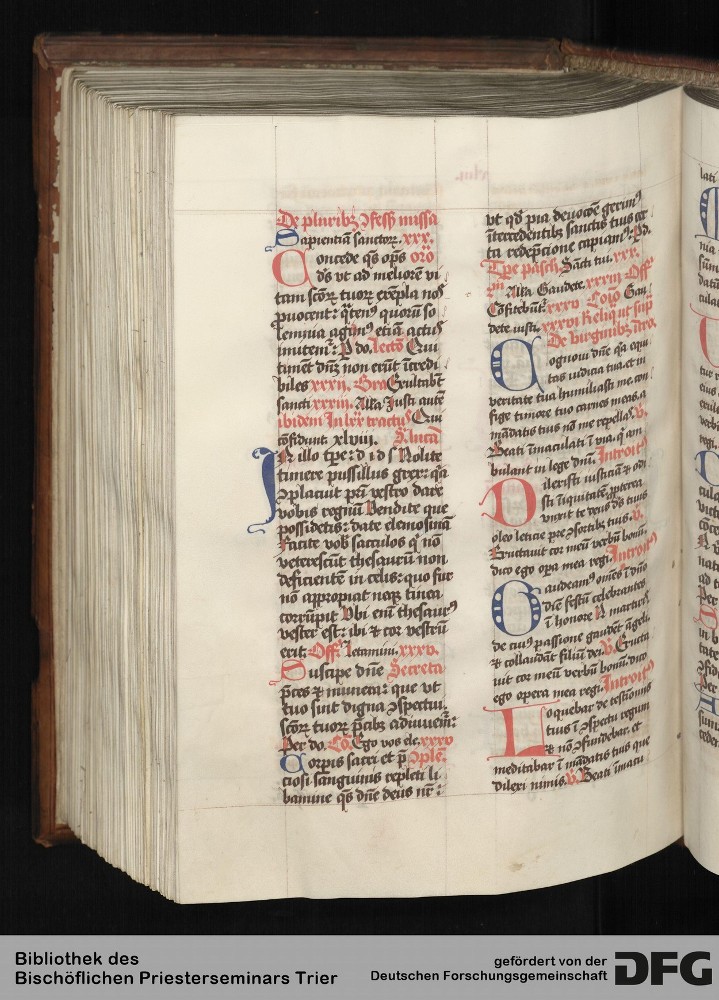 De pluribz ɔfessͥ missa
Sapientiā sanctoꝝ. xxx.
Concede q̄s op̄s orō
ds̄ vt ad meliorē vi
tam sc̄oꝝ tuoꝝ exēpla nos
ꝓuocent: q̄ten⁹ quorū so
lemnia agim⁹ etiā act⁹
imitem̄: P do. lectō Qui
timēt dn̄m non erūt īcredi
biles xxxij. Gra Exultabt
sancti xxxiij. Alla Iusti autē
ibidem In lxx tractus Qui
cōfidunt xlviij. S. lucā
In illo tp̄e: d i d s Nolite
timere pusillus grex: q̄a
ɔplacuit pr̄i vestro dare
vobis regnū Vendite que
possidetis: date elemosinā
Facite vob̄ sacculos q̄ nō
veterescūt thesaurū non
deficientē in celis: quo fur
nō appropiat neqz tinea
corrūpit Vbi enī thesaur⁹
vester est: ibi ⁊ cor vestrū
erit: Off. Letamini. xxxv.
Suscipe dn̄e Secreta
p̄ces ⁊ munera: que vt
tuo sint digna ɔspectui.
sc̄oꝝ tuoꝝ p̄cibz adiuuem̄:
Per do. Cō. Ego vos ele. xxxv
Corpis sacri et p̄ ɔplē.
ciosi sanguinis repleti li
bamine q̄s dn̄e deus nr̄:
vt qd̄ pia deuocōe gerim⁹
ītercedentibz sanctis tuis cer
ta redēpcione capiam⁹: P d.
Tp̄e pasch. Sācti tui. xxx.
Alla Gaudete. xxxiij Off
Cōfitebūt. xxxv Coīo Gau
dete iusti. xxxvi Reliq̄ ut sup̄
De virginibz Itro.
Cognoui dn̄e q̄a equi
tas iudicia tua. et in
veritate tua humiliasti me. con
fige timore tuo carnes meas. a
mādatis tuis nō me repellas. V.
Beati īmaculati ī via. q̄ am
bulant in lege dn̄i. Introit⁹
Dilexisti iusticiā ⁊ odi
sti īiquitatē ꝓpterea
vnxit te deus ds̄ tuus
oleo leticie pre ɔsortibz tuis. V.
Eructauit cor meū verbū bonū.
dico ego opa mea regi. Introit⁹
Gaudeam⁹ om̄es ī dn̄o
diē festū celebrantes
ī honore N martiris
de cui⁹ passione gaudēt āgeli.
⁊ collaudāt filiū dei. V. Eructa
uit cor meū verbū bonū. dico
ego opera mea regi. Introit⁹
Loquebar de testīoniis
tuis ī ɔspectu regum
⁊ nō ɔfundebar. et
meditabar ī mādatis tuis que
dilexi nimis. V. Beati īmacu
Bibliothek des
Bischöflichen Priesterseminars Trier
gefördert von der
Deutschen Forschungsgemeinschaft
DFG